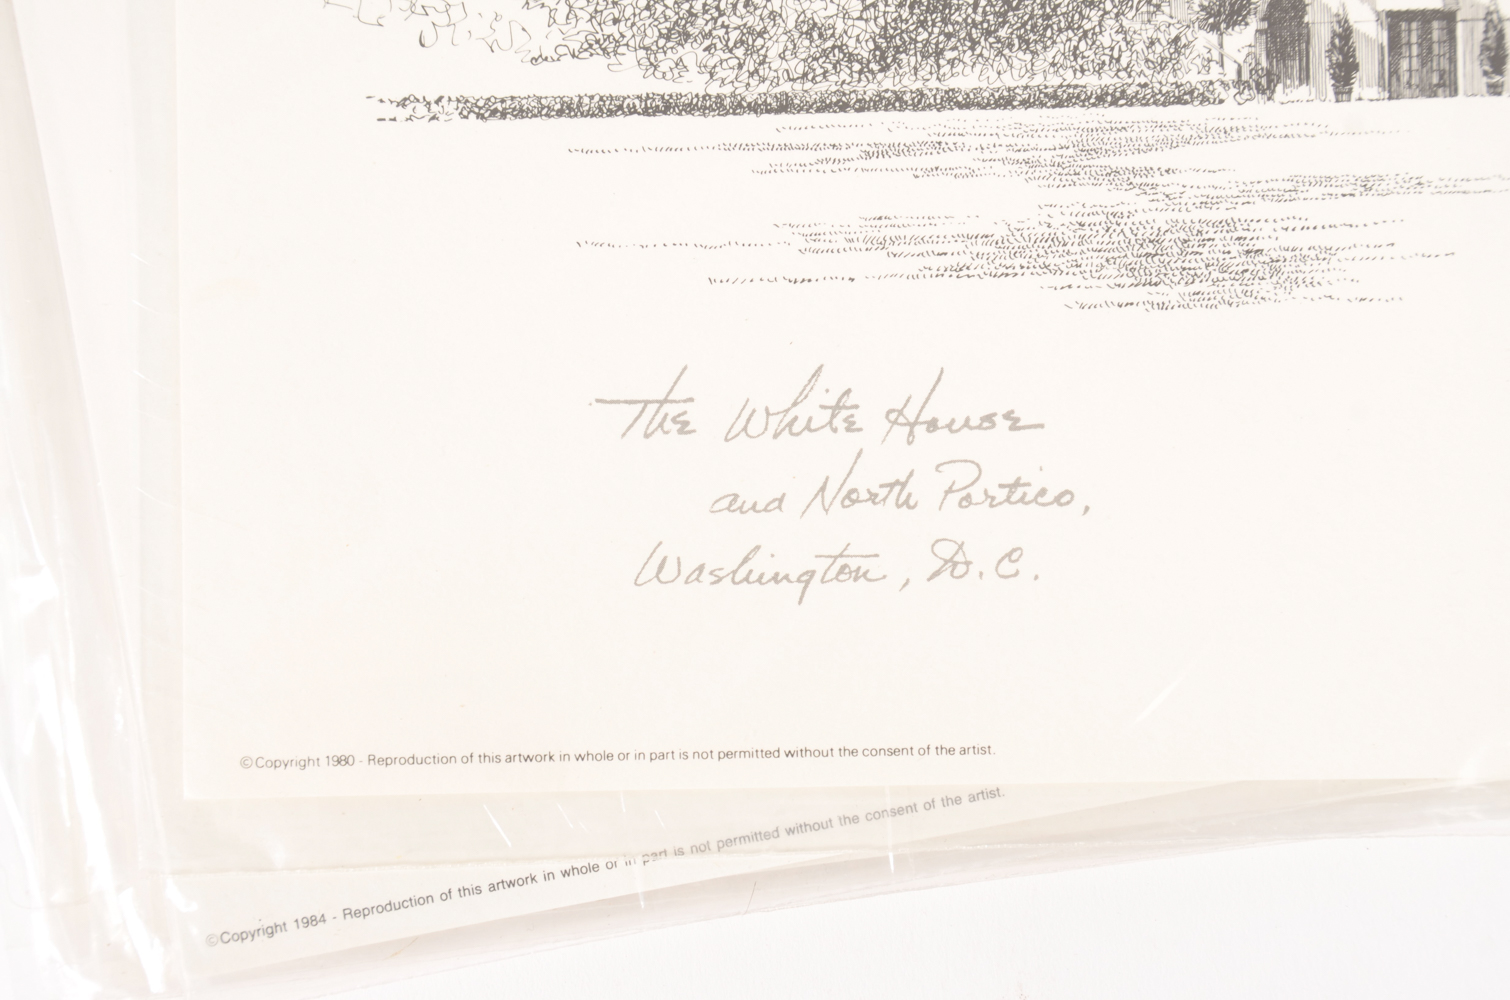 The White House
and North Portico,
Washington, D.C.
©Copyright 1980 - Reproduction of this artwork in whole or in part is not permitted without the consent of the artist.
©Copyright 1984 - Reproduction of this artwork in whole or in part is not permitted without the consent of the artist.